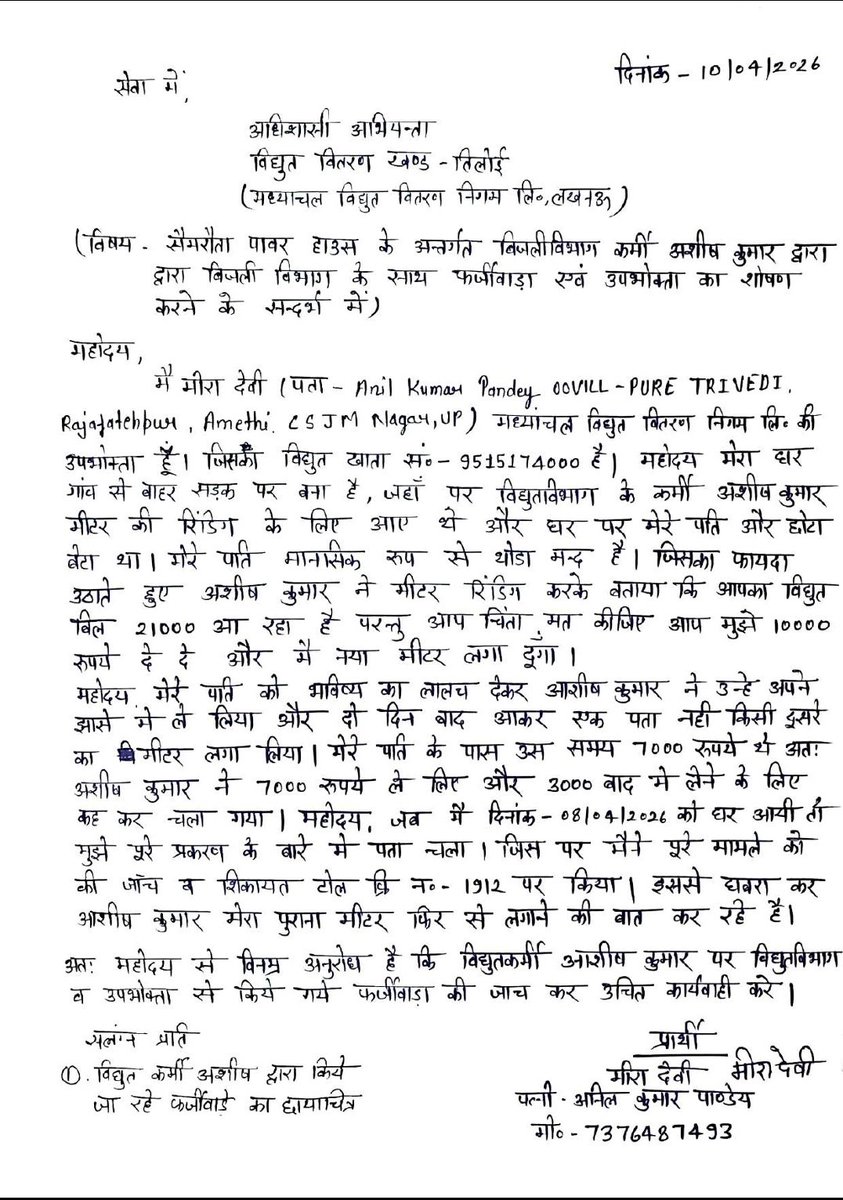 दिनांक - 10/04/2026
सेवा में,
अधिशासी अभियन्ता
विद्युत वितरण खण्ड - तिलोई
(मध्यांचल विद्युत वितरण निगम लि०, लखनऊ)
(विषय - सैमरौता पावर हाउस के अन्तर्गत बिजलीविभाग कर्मी अशीष कुमार द्वारा
द्वारा बिजली विभाग के साथ फर्जीवाड़ा एवं उपभोक्ता का शोषण
करने के सन्दर्भ में)
महोदय,
मै मीरा देवी (पता - Anil Kumar Pandey 00VILL - PURE TRIVEDI,
Rajafatehpur, Amethi. CSJM Nagar, UP) मध्यांचल विद्युत वितरण निगम लि० की
उपभोक्ता हूँ। जिसका विद्युत खाता सं० - 9515174000 है। महोदय मेरा घर
गांव से बाहर सड़क पर बना है, जहाँ पर विद्युतविभाग के कर्मी अशीष कुमार
मीटर की रिंडिग के लिए आए थे और घर पर मेरे पति और छोटा
बेटा था। मेरे पति मानसिक रुप से थोडा मन्द है। जिसका फायदा
उठाते हुए अशीष कुमार ने मीटर रिंडिग करके बताया कि आपका विद्युत
बिल 21000 आ रहा है परन्तु आप चिंता मत कीजिए आप मुझे 10000
रुपये दे दे और मै नया मीटर लगा दूँगा।
महोदय मेरे पति को भविष्य का लालच देकर आशीष कुमार ने उन्हे अपने
झासे मे ले लिया और दो दिन बाद आकर एक पता नही किसी दूसरे
का मीटर लगा लिया। मेरे पति के पास उस समय 7000 रुपये थे अतः
अशीष कुमार ने 7000 रुपये ले लिए और 3000 बाद मे लेने के लिए
कह कर चला गया। महोदय, जब मै दिनांक - 08/04/2026 को घर आयी तो
मुझे पूरे प्रकरण के बारे मे पता चला। जिस पर मैने पूरे मामले को
की जाँच व शिकायत टोल फ्रि न० - 1912 पर किया। इससे घबरा कर
आशीष कुमार मेरा पुराना मीटर फिर से लगाने की बात कर रहे है।
अतः महोदय से विनम्र अनुरोध है कि विद्युतकर्मी आशीष कुमार पर विद्युतविभाग
व उपभोक्ता से किये गये फर्जीवाड़ा की जाच कर उचित कार्यवाही करे।
सलंग्न प्रति
① विद्युत कर्मी अशीष द्वारा किये
जा रहे फर्जीवाड़े का छायाचित्र
प्रार्थी
मीरा देवी मीरा देवी
पत्नी - अनिल कुमार पाण्डेय
मो० - 7376487493